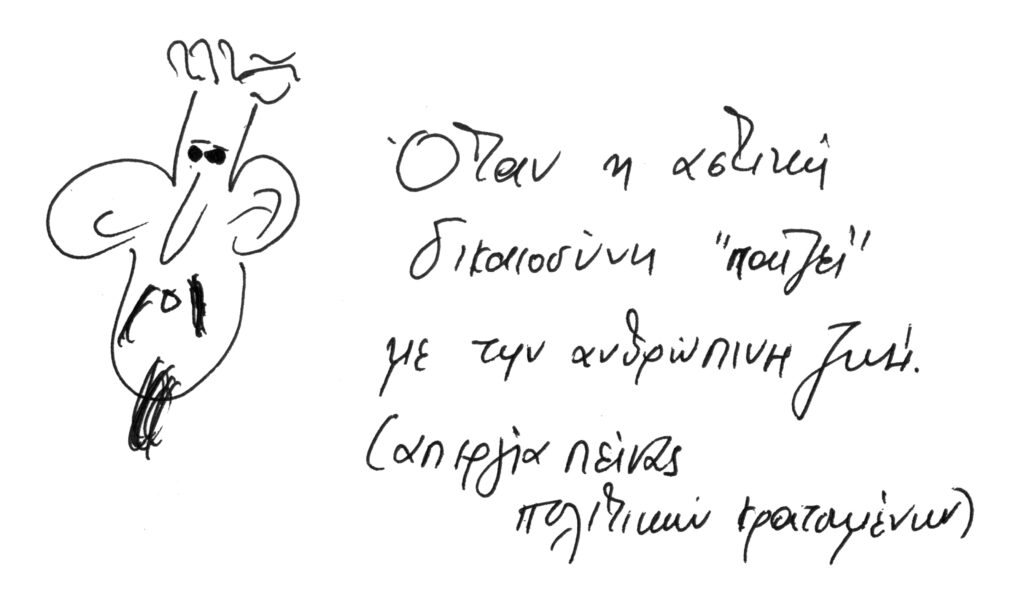 Όταν η αστική
δικαιοσύνη "παίζει"
με την ανθρώπινη ζωή.
(απεργία πείνας
πολιτικών κρατουμένων)